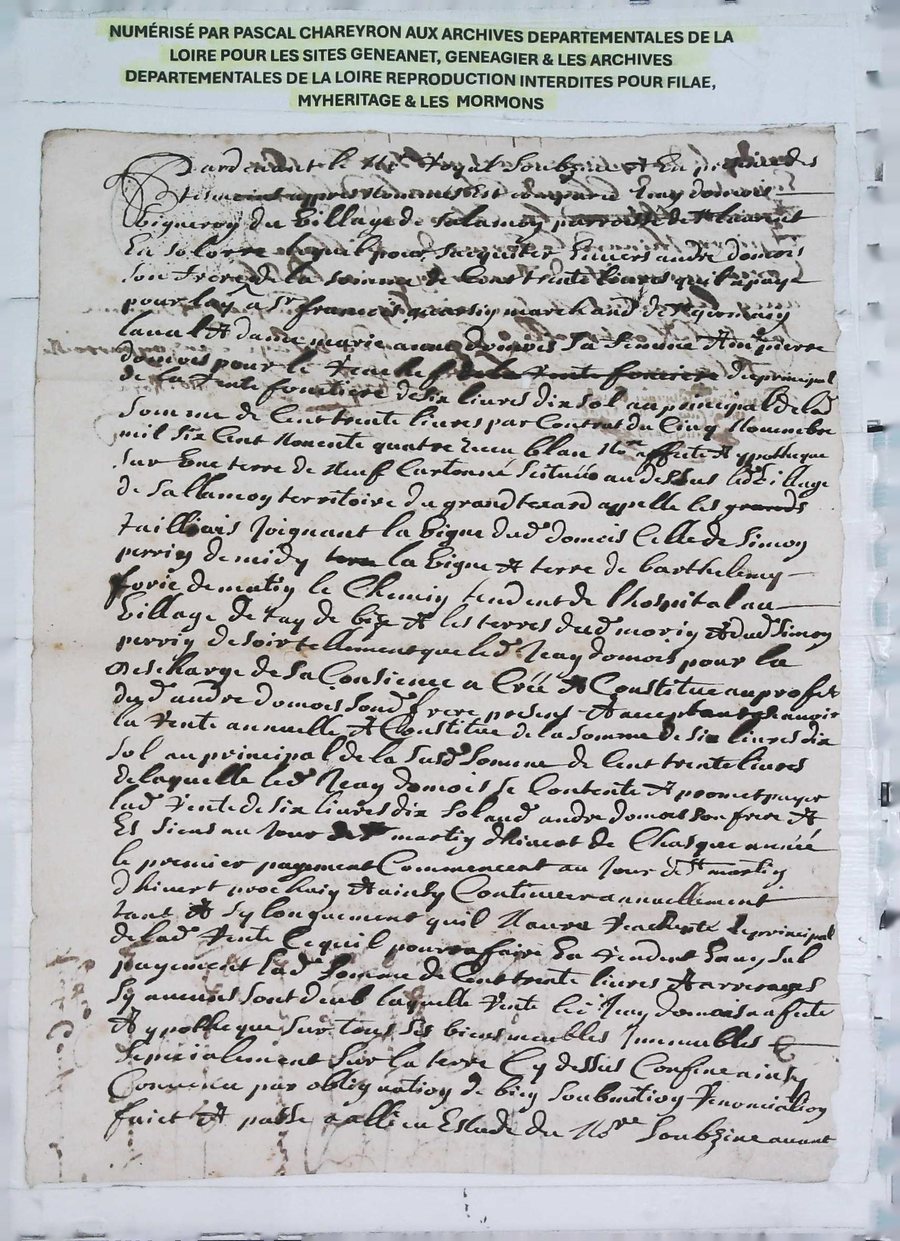 NUMÉRISÉ PAR PASCAL CHAREYRON AUX ARCHIVES DEPARTEMENTALES DE LA
LOIRE POUR LES SITES GENEANET, GENEAGIER & LES ARCHIVES
DEPARTEMENTALES DE LA LOIRE REPRODUCTION INTERDITES POUR FILAE,
MYHERITAGE & LES MORMONS
Pardevant le Nore Royal Soubzine & En presence des
tesmoint appres Nommes Est comparu Jean domois
Vigneron du Village de salamon parroisse de St laurent
En solorre lequel pour sacquiter Envers andre domois
son frere de la somme de Cent trente livres quil a paye
pour luy a Sr francois marchand de
laval & dame marie anne domois sa femme
domois pour le de la Rente fonciere du principal
de la Rente fontiere de six livres dix sol au principal de lad
somme de Cent trente livres par Contrat du Cinq Novembre
mil six Cent Nonente quatre Receu blan Nore affecte & ypotheque
sur Une terre de Neuf Cartonné scituée au dessus led Village
de sallamon territoire du grand appelle les grands
Joignant la Vigne dud domois Celle de Simon
perrin de midy terre la Vigne & terre de barthelemy
forie de matin le Chemin tendent de lhospital au
Village de de bize & les terres dud morin & dud Simon
perrin de soir tellement que led Jean domois pour la
descharge de sa Consience a Créé & Constitue au profit
dud andre domois sond frere presens & acceptant scavoir
la Rente annuelle & Constitue de la somme de six livres dix
sol au principal de la susd somme de Cent trente livres
de laquelle led Jean domois se Contente & promet payer
lad Rente de six livres dix sol aud andre domois son frere &
Es siens au Jour martin dhivert de Chasque année
le premier payement Commencent au Jour de St martin
dhivert prochain & ainsy Continuer annuellement
tant & sy longuement quil Naura Rachepte le principal
de lad Rente Ce quil pourra faire En Rendent En un sul
payement lad somme de Cent trente livres & arrerages
sy aucuns sont deub laquelle Rente led Jean domois a affecte
& ypotheque sur tous ses biens meubles Immeubles &
specialement sur la terre Cy dessus Confine ainsy
Convenu par oblignation de bien soubmition Renonciation
faict & passe a allieu Estude du Nore Soubzine avant